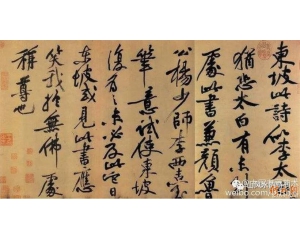 東坡此詩似李太
猶恐太白有未到
處此書兼顏魯
公楊少師李西臺
筆意試使東坡
復為之未必及此它日
東坡或見此書應
笑我於無佛處
稱尊也